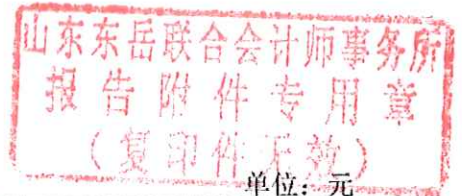 山东东岳联合会计师事务所
报告附件专用章
（复印件无效）
单位：元